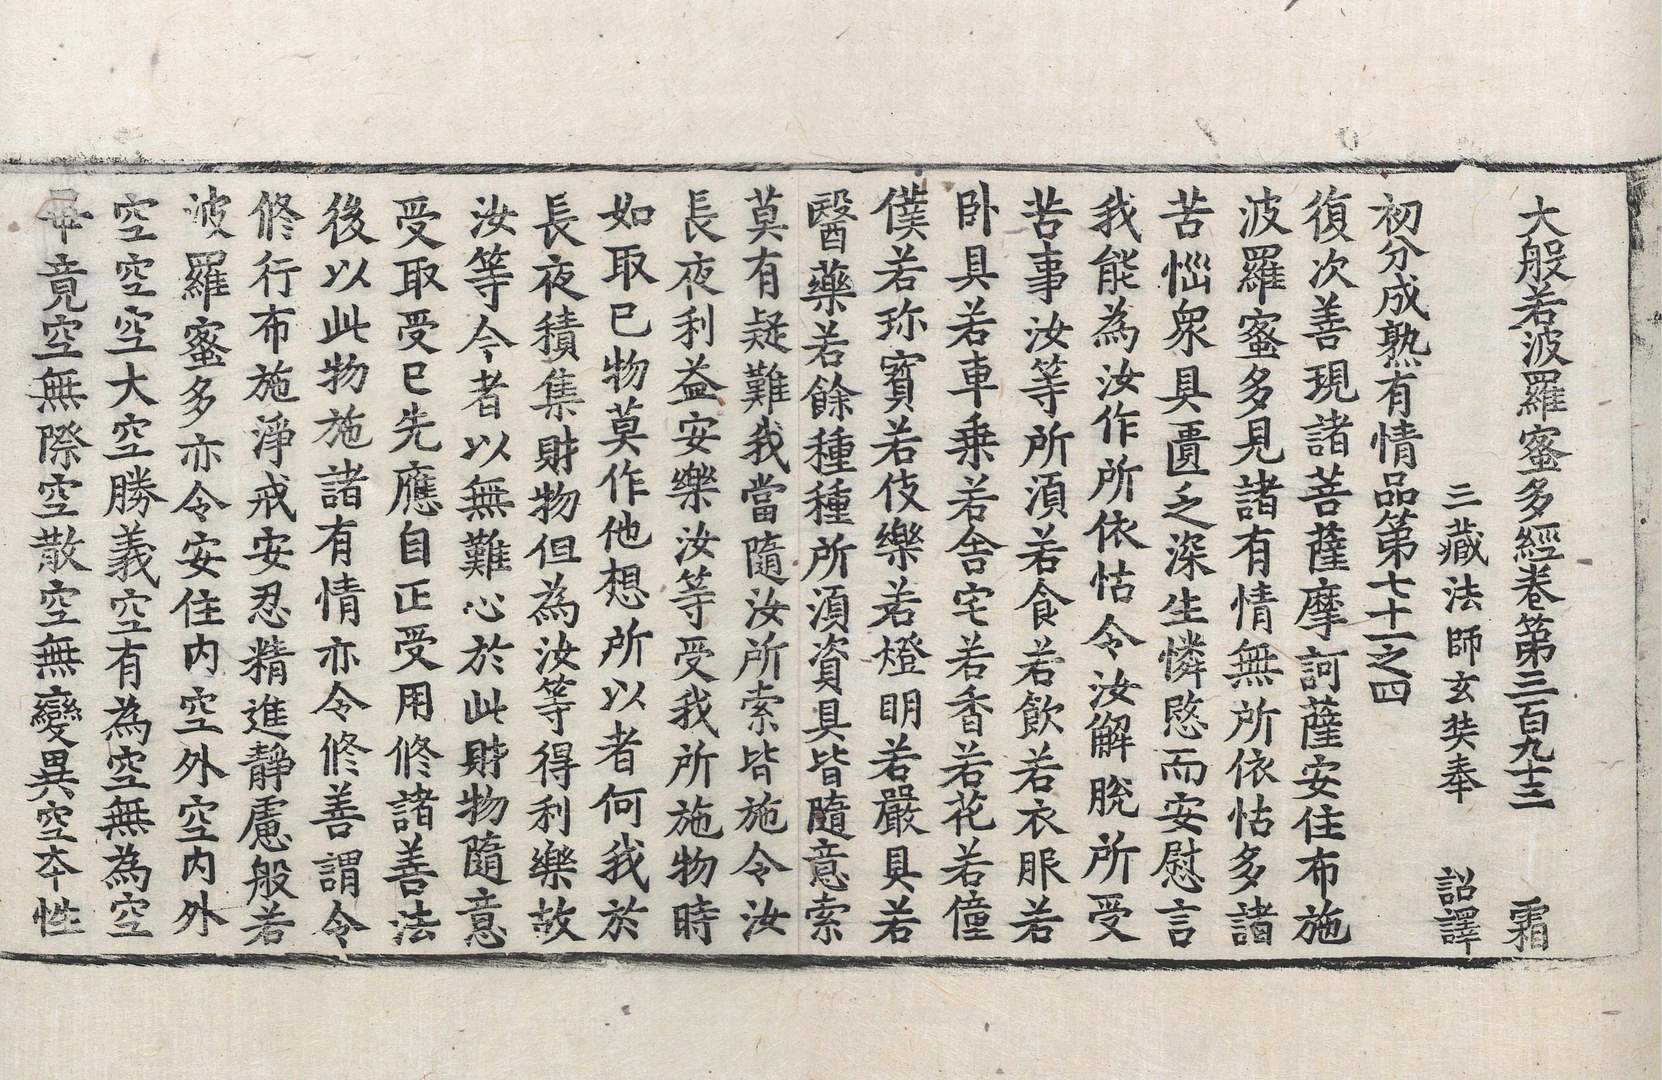 大般若波羅蜜多經卷第三百九十三 霜
三藏法師玄奘奉 詔譯
初分成熟有情品第七十一之四
復次善現諸菩薩摩訶薩安住布施
波羅蜜多見諸有情無所依怙多諸
苦惱衆具匱乏深生憐愍而安慰言
我能為汝作所依怙令汝解脫所受
苦事汝等所須若食若飲若衣服若
卧具若車乗若舎宅若香若花若僮
僕若珎寳若伎樂若燈明若嚴具若
醫藥若餘種種所須資具皆隨意索
莫有疑難我當隨汝所索皆施令汝
長夜利益安樂汝等受我所施物時
如取已物莫作他想所以者何我於
長夜積集財物但為汝等得利樂故
汝等今者以無難心於此財物隨意
受取受已先應自正受用修諸善法
後以此物施諸有情亦令修善謂令
修行布施淨戒安忍精進靜慮般若
波羅蜜多亦令安住内空外空内外
空空空大空勝義空有為空無為空
畢竟空無際空散空無變異空本性